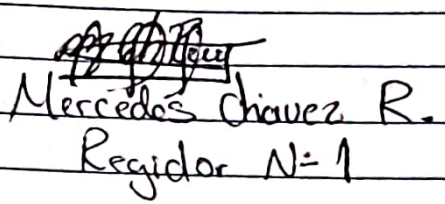 Mercedes Chavez R.
Regidor N=1